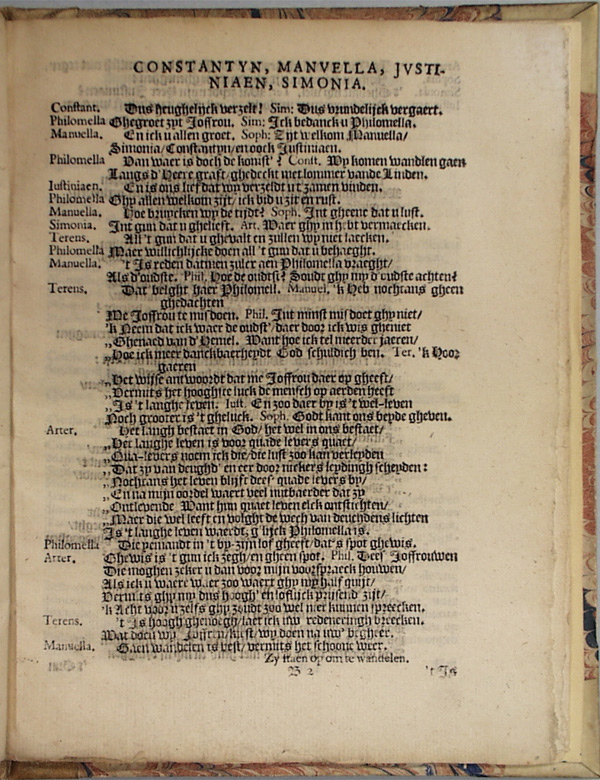 CONSTANTYN, MANVELLA, JVSTI-
NIAEN, SIMONIA.
Constant. Dus heughelijck verzelt! Sim: Dus vrundelijck vergaert.
Philomella Ghegroet zyt Joffrou. Sim: Ick bedanck u Philomella.
Manuella. En ick u allen groet. Soph: Zijt welkom Manuella/
Simonia/ Constantyn/ en oock Justiniaen.
Philomella Van waer is doch de komst? Const. Wy komen wandlen gaen
Langs d'Heere graft/ ghedeckt met lommer vande Linden.
Iustiniaen. En is ons lief dat wy verzeldt u t'zamen vinden.
Philomella Ghy allen welkom zijt/ ick bid u zit en rust.
Manuella. Hoe bruycken wy de tijdt? Soph. Int gheene dat u lust.
Simonia. Int gun dat u ghelieft. Art. Waer ghy in hebt vermaecken.
Terens. All 't gun dat u ghevalt en zullen wy niet laecken.
Philomella Maer willichlijcke doen all 't gun dat u behaeght.
Manuella. 't Is reden datmen zulcx aen Philomella vraeght/
Als d'oudste. Phil. Hoe de oudste? Soudt ghy my d'oudste achten?
Terens. Dat belght haer Philomell. Manuel. 'k Heb nochtans gheen
ghedachten
Me Joffrou te misdoen. Phil. Int minst misdoet ghy niet/
'k Neem dat ick waer de oudst'/ daer door ick wis gheniet
„Ghenaed van d'Hemel. Want hoe ick tel meerder jaeren/
„Hoe ick meer danckbaerheydt God schuldich ben. Ter. 'k Hoor
gaeren
„Het wijse antwoordt dat me Joffrou daer op gheeft/
„Vermits het hooghste luck de mensch op aerden heeft
„Is 't langhe leven. Just. En zoo daer by is 't wel-leven
Noch grooter is 't gheluck. Soph. Godt kant ons beyde gheven.
Arter. Het langh bestaet in God/ het wel in ons bestaet/
„Het langhe leven is voor quade levers quaet/
„Qua-levers noem ick die/ die lust zoo kan verleyden
„Dat zy van deughd' en eer door niekers leydingh scheyden:
„Nochtans het leven blijft dees' quade levers by/
„En na mijn oordel waert veel nutbaerder dat zy
„Ontlevende. Want hun quaet leven elck ontstichten/
„Maer die wel leeft en volght de wech van deuchdens lichten
Is 't langhe leven waerdt/ g'lijck Philomella is.
Philomella Die yemandt in 't by-zijn lof gheeft/ dat's spot ghewis.
Arter. Ghewis is 't gun ick zegh/ en gheen spot. Phil. Dees' Joffrouwen
Die moghen zeker u dan voor mijn voorspraeck houwen/
Als ick u waere waer zoo waert ghy my half quijt/
Vermits ghy my dus hoogh' en loflijck prijsend zijt/
'k Acht voor u zelfs ghy zoudt zoo wel niet kunnen spreecken.
Terens. 't Is hoogh ghenoegh/ laet ick uw redeneeringh breecken.
Wat doen wy Joffren/ kiest/ wy doen na uw' begheer.
Manuella. Gaen wandelen is best/ vermits het schoone weer.
Zy staen op om te wandelen.
B 2 't Is